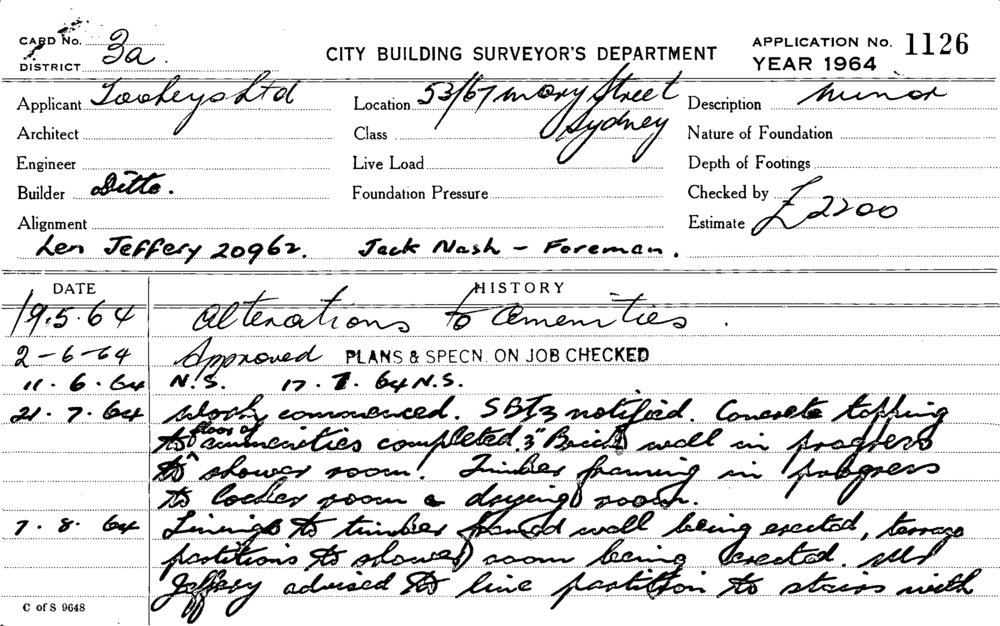 CARD No.
DISTRICT 3a.
CITY BUILDING SURVEYOR'S DEPARTMENT
APPLICATION No. 1126
YEAR 1964
Applicant Tooheys Ltd
Location 53/67 Mary Street Sydney
Description Minor
Architect
Class
Nature of Foundation
Engineer
Live Load
Depth of Footings
Builder Ditto.
Foundation Pressure
Checked by
Alignment
Estimate £2200
Len Jeffery 20962. Jack Nash - Foreman.
DATE HISTORY
19.5.64 Alterations to Amenities.
2-6-64 Approved PLANS & SPECN. ON JOB CHECKED
11.6.64 N.S. 17.7.64 N.S.
21.7.64 Work commenced. SBI3 notified. Concrete topping
to floor of ammenities completed. 3" Brick wall in progress
to shower room. Timber framing in progress
to locker room & drying room.
7.8.64 Linings to timber framed wall being erected, terrazo
partitions to shower room being erected. Mr
Jeffery advised to line partition to stairs with
C of S 9648